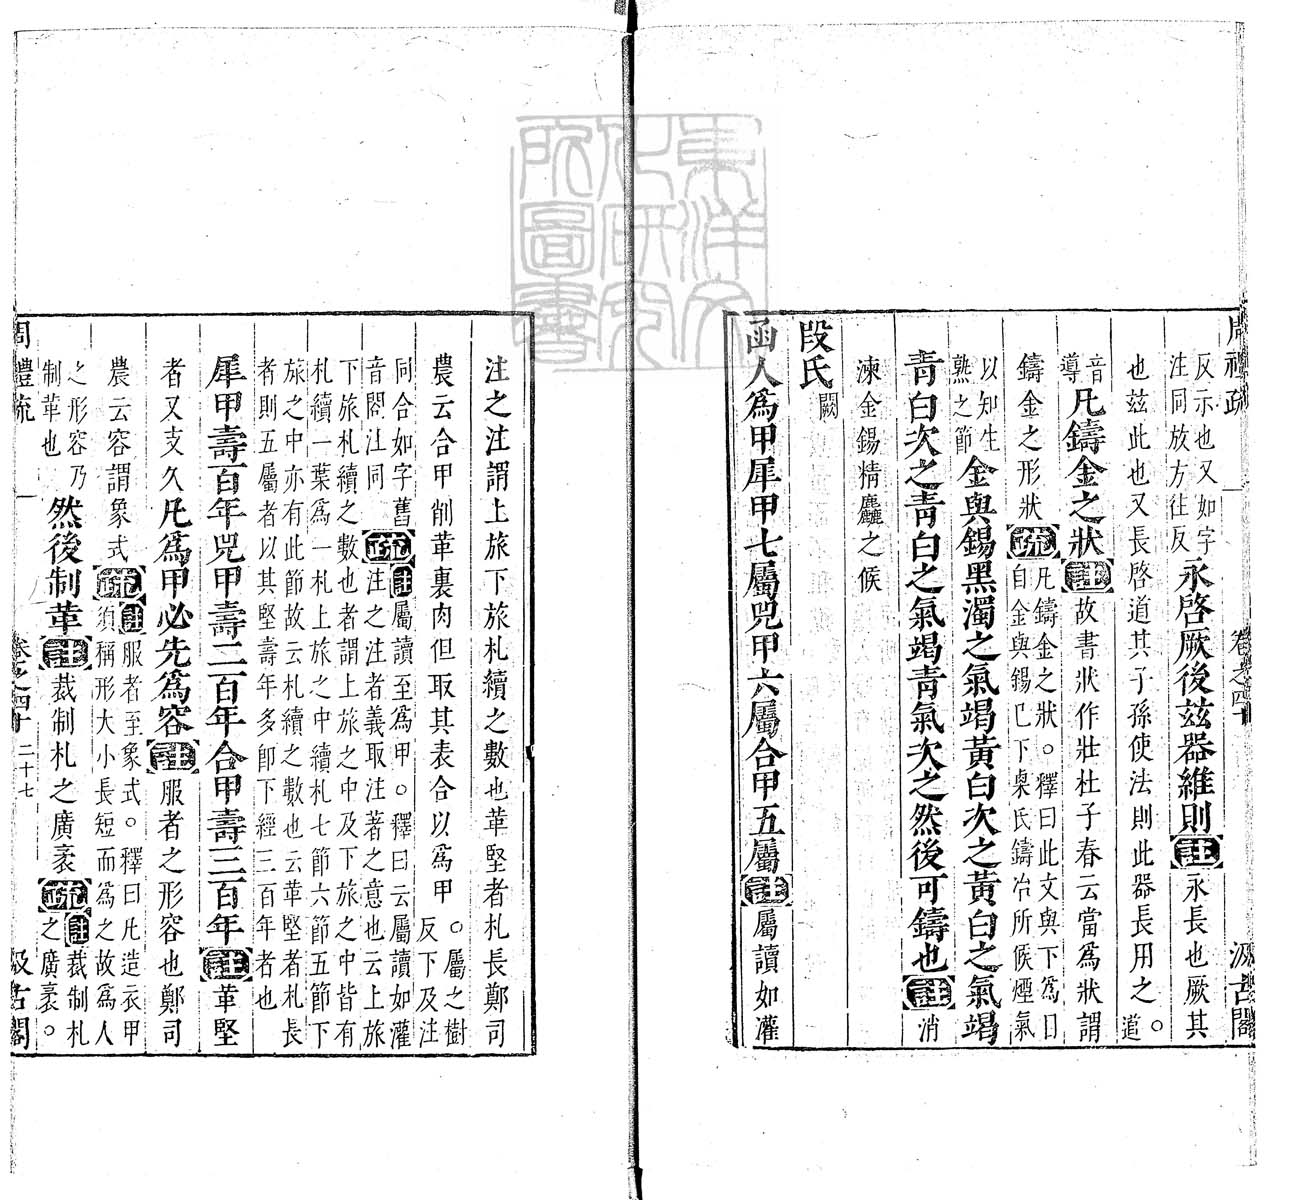 周禮疏
卷之四十
汲古閣
反示也又如字
注同放方往反
永啓厥後茲器維則註永長也厥其
也茲此也又長啓道其子孫使法則此器長用之○道
音
導
凡鑄金之狀註故書狀作壯杜子春云當爲狀謂
鑄金之形狀疏凡鑄金之狀○釋曰此文與下爲目
自金與錫已下㮚氏鑄冶所候煙氣
以知生
熟之節
金與錫黑濁之氣竭黃白次之黃白之氣竭
青白次之青白之氣竭青氣次之然後可鑄也註消
湅金錫精麤之候
段氏闕
函人爲甲犀甲七屬兕甲六屬合甲五屬註屬讀如灌
注之注謂上旅下旅札續之數也革堅者札長鄭司
農云合甲削革裏肉但取其表合以爲甲○屬之樹
反下及注
同合如字舊
音閤注同
疏註屬讀至爲甲○釋曰云屬讀如灌
注之注者義取注著之意也云上旅
下旅札續之數也者謂上旅之中及下旅之中皆有
札續一葉爲一札上旅之中續札七節六節五節下
旅之中亦有此節故云札續之數也云革堅者札長
者則五屬者以其堅壽年多卽下經三百年者也
犀甲壽百年兕甲壽二百年合甲壽三百年註革堅
者又支久凡爲甲必先爲容註服者之形容也鄭司
農云容謂象式疏註服者至象式○釋曰凡造衣甲
須稱形大小長短而爲之故爲人
之形容乃
制革也
然後制革註裁制札之廣袤疏註裁制札
之廣袤○
周禮疏
卷之四十
二十七
汲古閣
東洋文化研究所圖書